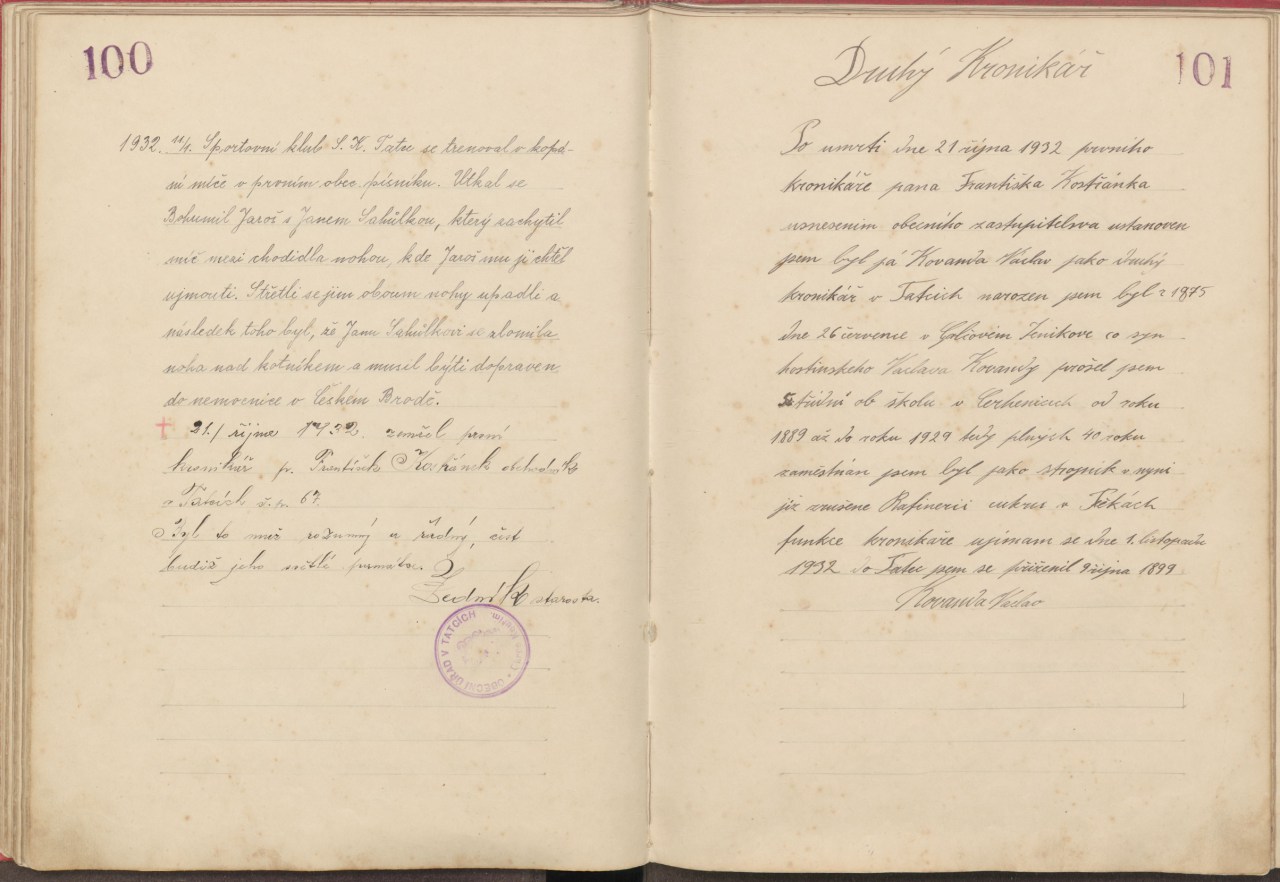 100
1932. 11/4. Sportovní klub S. K. Tatce se trenoval v kopá-
ní míče v prvním obec. písníku. Utkal se
Bohumil Jaroš s Janem Sahůlkou, který zachytil
míč mezi chodidla nohou, kde Jaroš mu jí chtěl
ujmouti. Střetli se jim oboum nohy upadli a
následek toho byl, že Janu Sahůlkovi se zlomila
noha nad kotníkem a musil býti dopraven
do nemocnice v Českém Brodě.
21./ října 1932. zemřel první
kronikář p. František Kořánek obchodník
v Tatcích č. p. 67.
Byl to muž rozumný a řádný, čest
budiž jeho světlé památce.
starosta.
OBECNÍ ÚŘAD V TATCÍCH
Druhý Kronikář
101
Po umrti dne 21 října 1932 prvního
kronikáře pana Františka Kostřánka
usnesenim obecního zastupitelsva ustanoven
jsem byl já Kovanda Václav jako druhý
kronikář v Tatcích narozen jsem byl r 1875
dne 26 července v Golčovém Jenikove co syn
hostinskeho Vaclava Kovandy prošel jsem
5 třídní ob školu v Cerhenicech od roku
1889 až do roku 1929 tedy plných 40 roku
zaměstnán jsem byl jako strojnik v nyni
již zrušene Rafinerii cukru v Pečkách
funkce kronikáře ujimam se dne 1. listopadu
1932 do Tatec jsem se přiženil 9 října 1899
Kovanda Václav